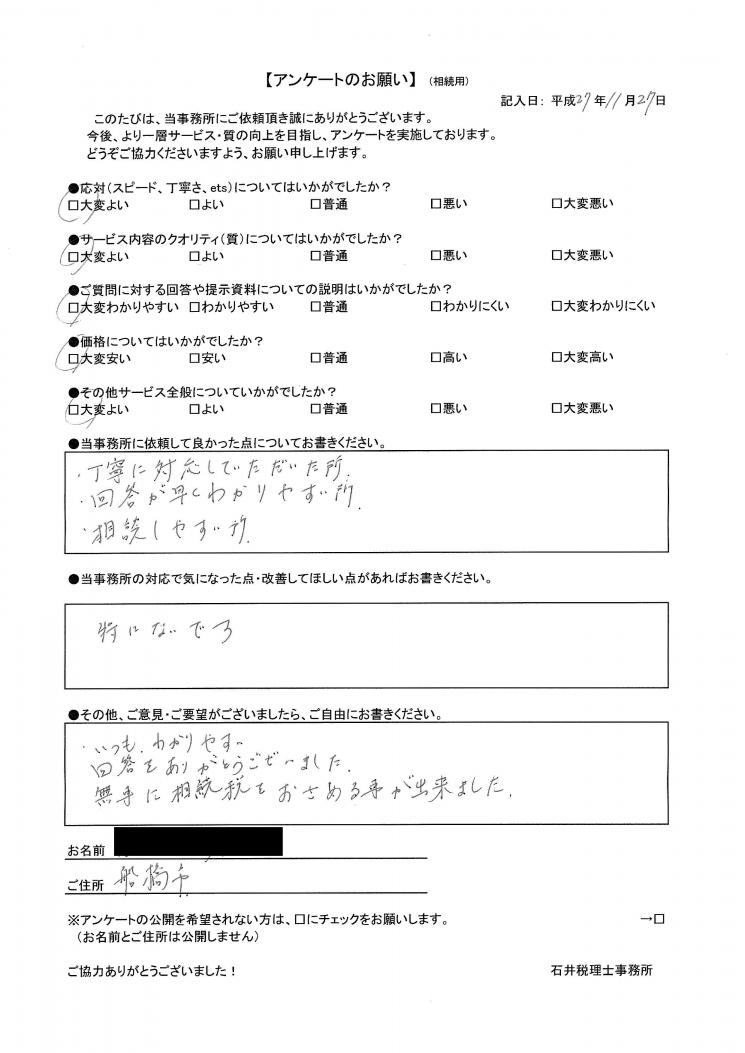 【アンケートのお願い】（相続用）
記入日：平成27年11月27日
このたびは、当事務所にご依頼頂き誠にありがとうございます。
今後、より一層サービス・質の向上を目指し、アンケートを実施しております。
どうぞご協力くださいますよう、お願い申し上げます。
●応対（スピード、丁寧さ、ets）についてはいかがでしたか？
□大変よい □よい □普通 □悪い □大変悪い
●サービス内容のクオリティ（質）についてはいかがでしたか？
□大変よい □よい □普通 □悪い □大変悪い
●ご質問に対する回答や提示資料についての説明はいかがでしたか？
□大変わかりやすい □わかりやすい □普通 □わかりにくい □大変わかりにくい
●価格についてはいかがでしたか？
□大変安い □安い □普通 □高い □大変高い
●その他サービス全般についていかがでしたか？
□大変よい □よい □普通 □悪い □大変悪い
●当事務所に依頼して良かった点についてお書きください。
・丁寧に対応していただいた所.
・回答が早くわかりやすい所.
・相談しやすい所.
●当事務所の対応で気になった点・改善してほしい点があればお書きください。
特にないです
●その他、ご意見・ご要望がございましたら、ご自由にお書きください。
・いつも、わかりやすい
回答をありがとうございました.
無事に相続税をおさめる事が出来ました.
お名前
ご住所 船橋市
※アンケートの公開を希望されない方は、□にチェックをお願いします。 →□
（お名前とご住所は公開しません）
ご協力ありがとうございました！ 石井税理士事務所